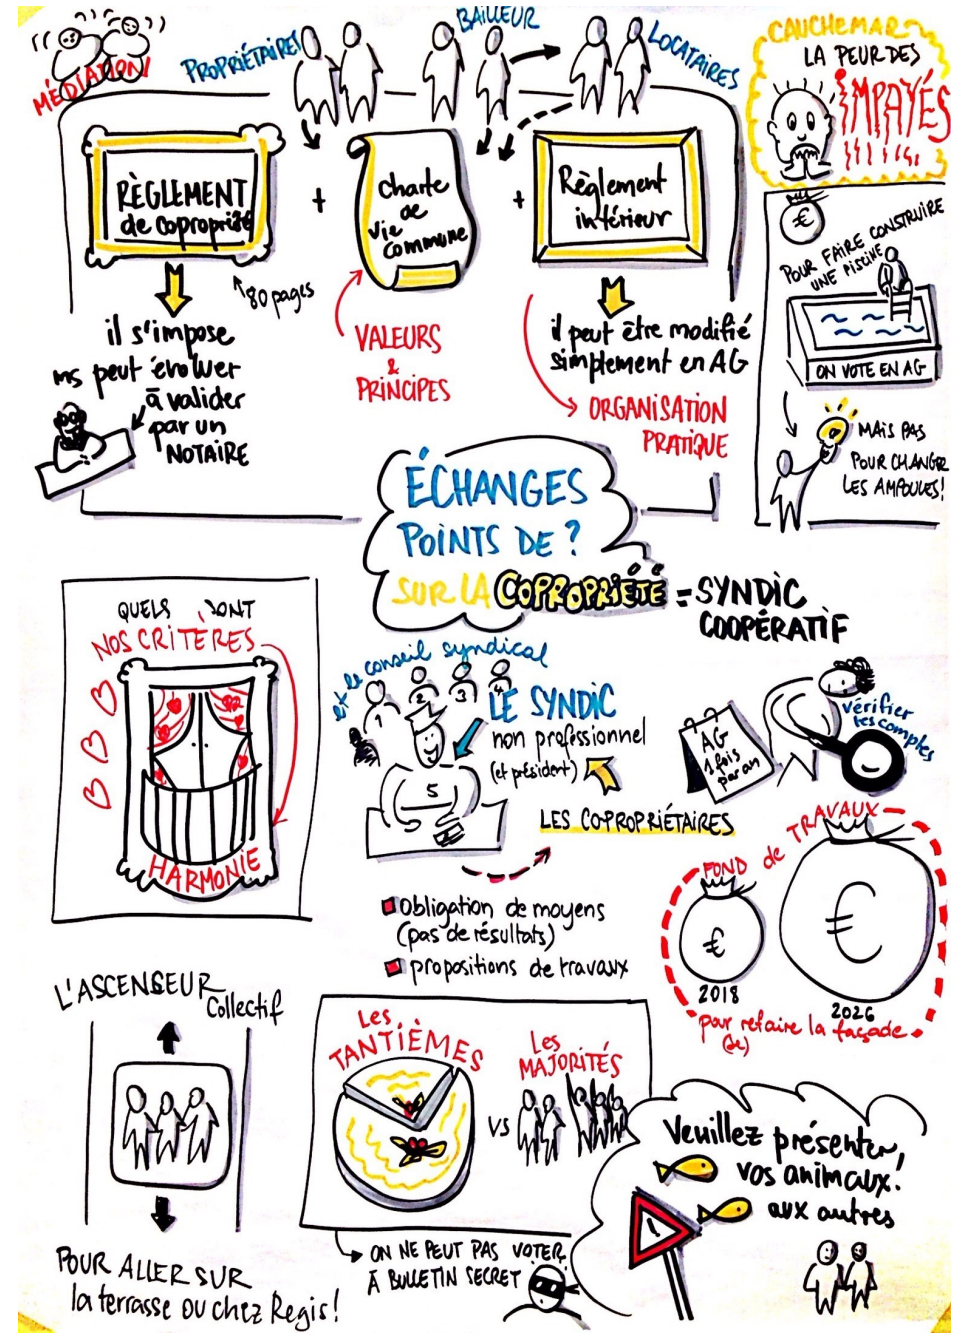 MÉDIATION!
PROPRIÉTAIRES
BAILLEUR
LOCATAIRES
CAUCHEMAR
LA PEUR DES
IMPAYÉS
!!!!!!
RÈGLEMENT
de copropriété
+
charte
de
vie
commune
+
Règlement
intérieur
80 pages
il s'impose
ms peut évoluer
à valider
par un
NOTAIRE
VALEURS
&
PRINCIPES
il peut être modifié
simplement en AG
ORGANISATION
PRATIQUE
€
POUR FAIRE CONSTRUIRE
UNE PISCINE
ON VOTE EN AG
MAIS PAS
POUR CHANGER
LES AMPOULES!
ÉCHANGES
POINTS DE ?
SUR LA COPROPRIÉTÉ = SYNDIC
COOPÉRATIF
QUELS SONT
NOS CRITÈRES
HARMONIE
et le conseil syndical
1 2 3 4
5
LE SYNDIC
non professionnel
(et président)
LES COPROPRIÉTAIRES
AG
1 fois
par an
vérifier
les comptes
obligation de moyens
(pas de résultats)
propositions de travaux
FOND de TRAVAUX
€
€
2018
2026
par refaire la façade
(de)
L'ASCENSEUR
Collectif
POUR ALLER SUR
la terrasse ou chez Regis!
Les
TANTIÈMES
VS
Les
MAJORITÉS
ON NE PEUT PAS VOTER
À BULLETIN SECRET
Veuillez présenter,
vos animaux.
aux autres
!